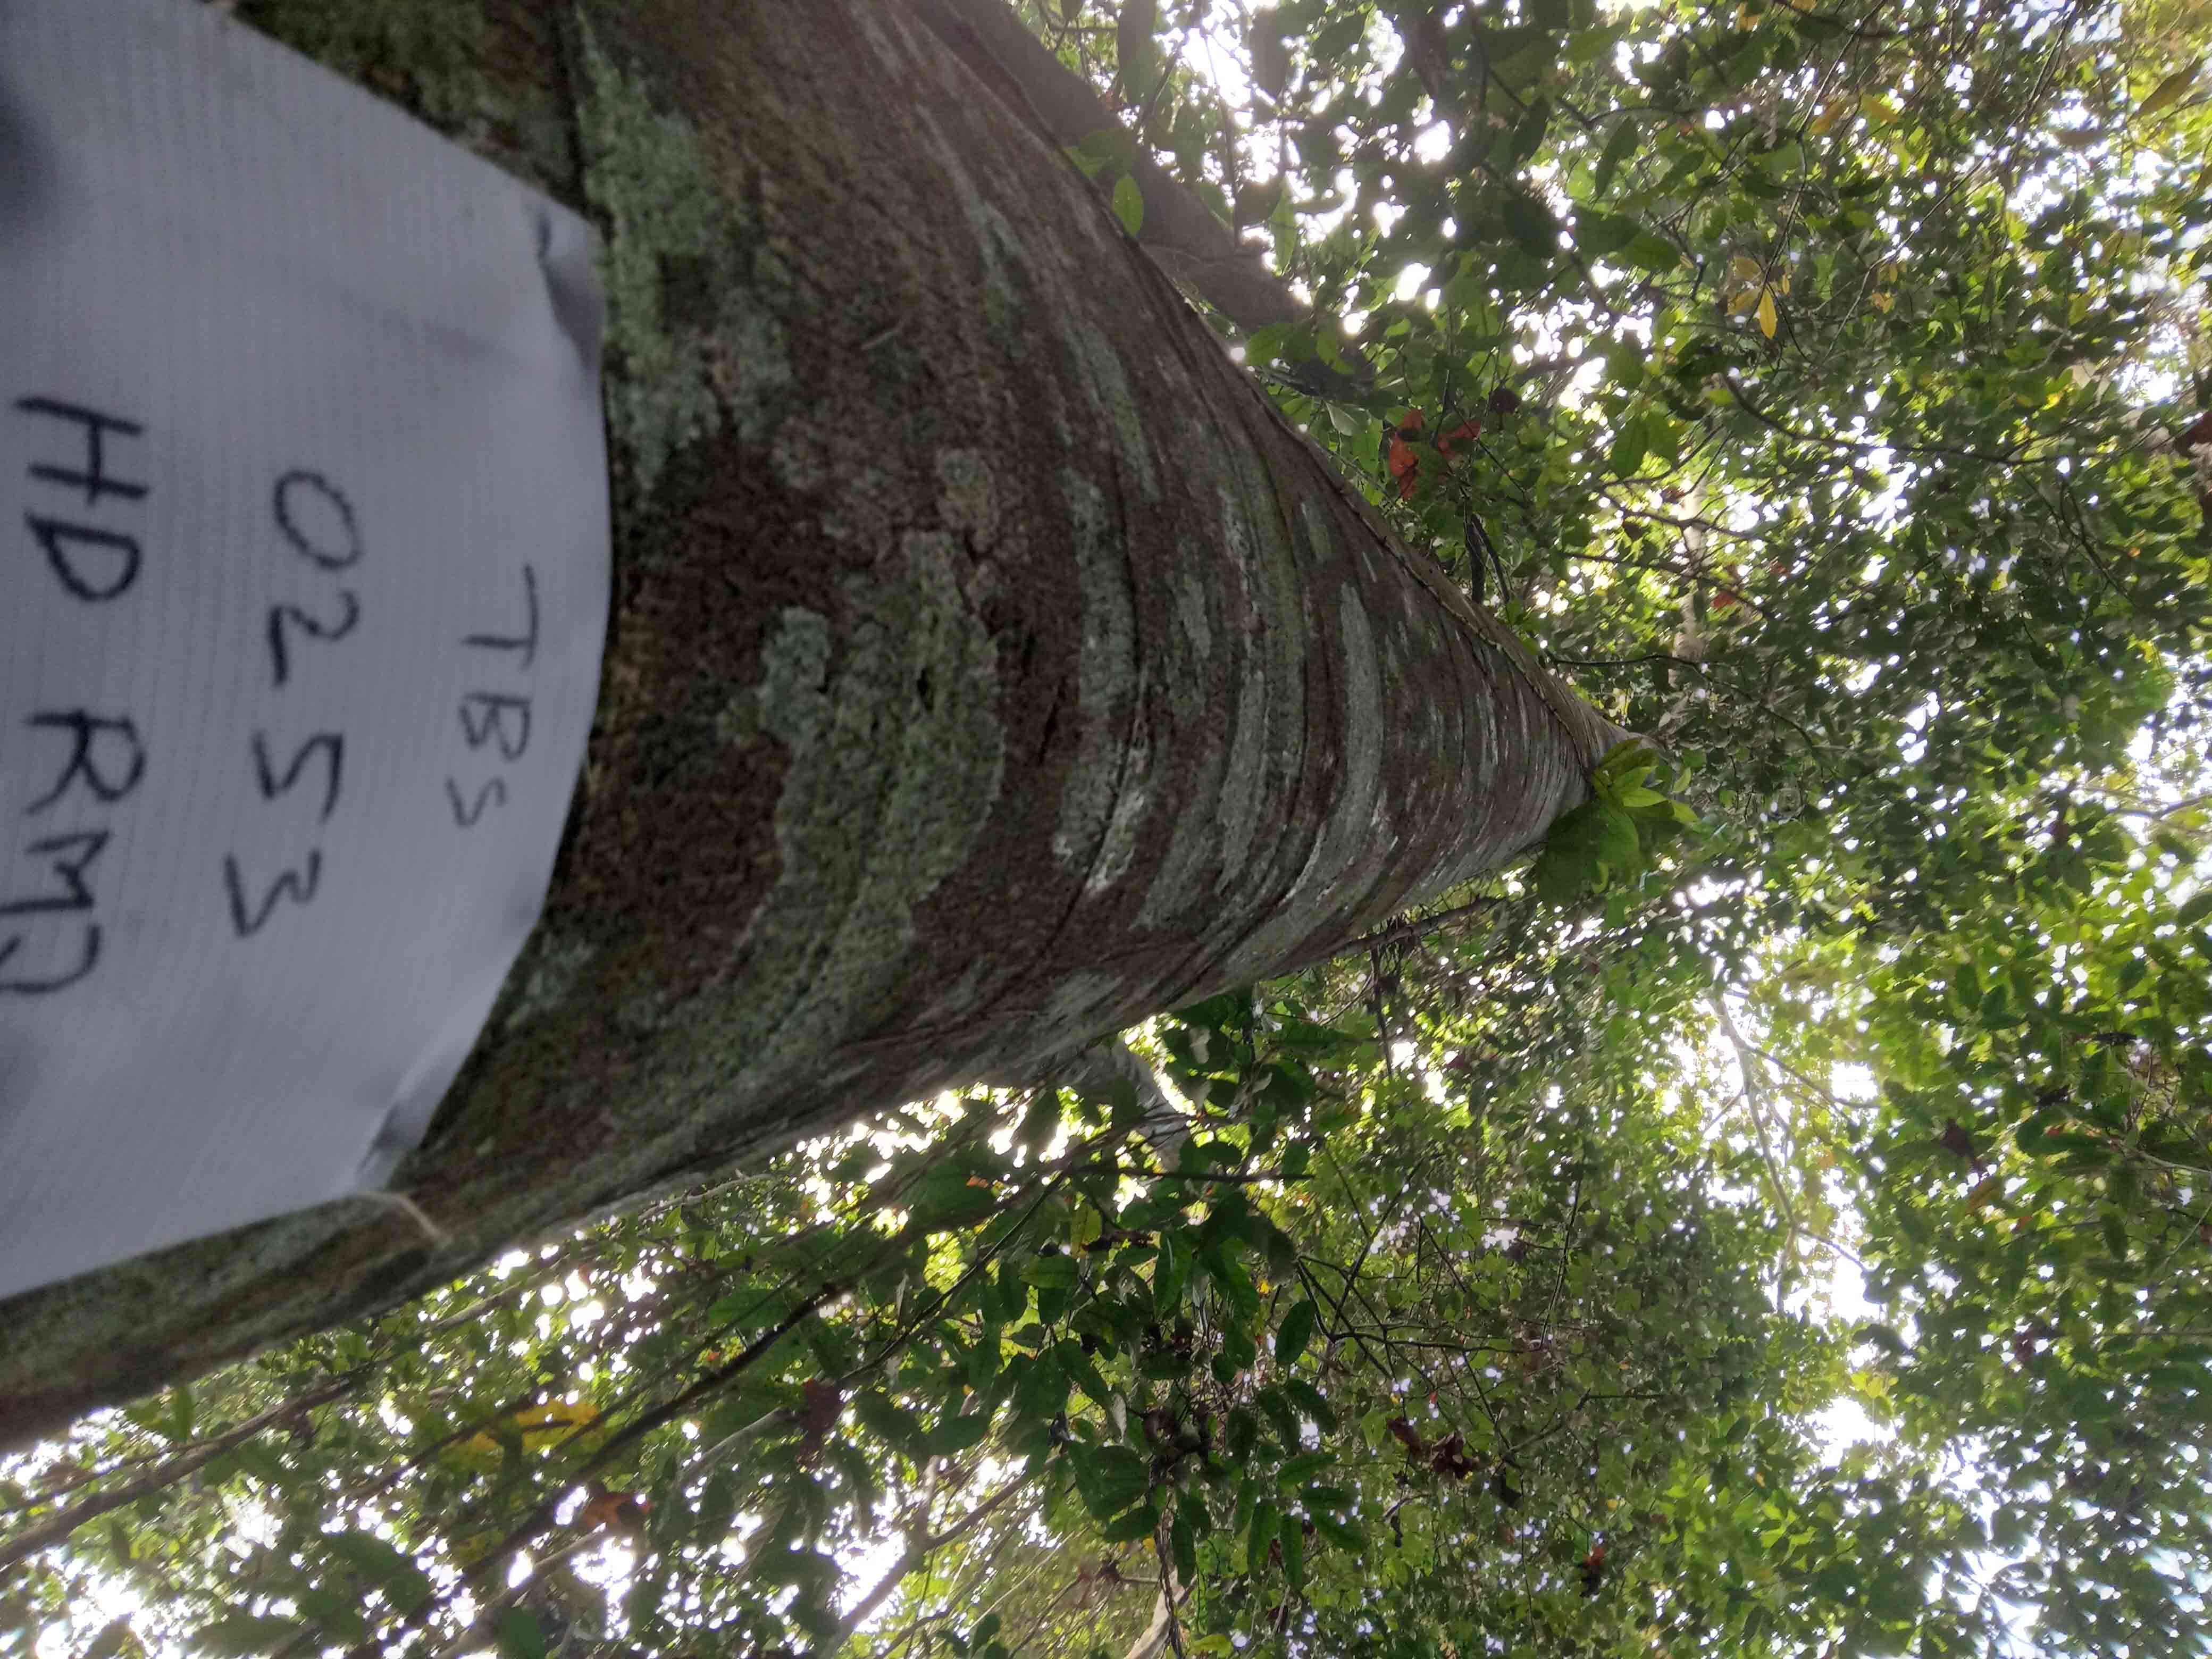 TBS
0253
HD RMD